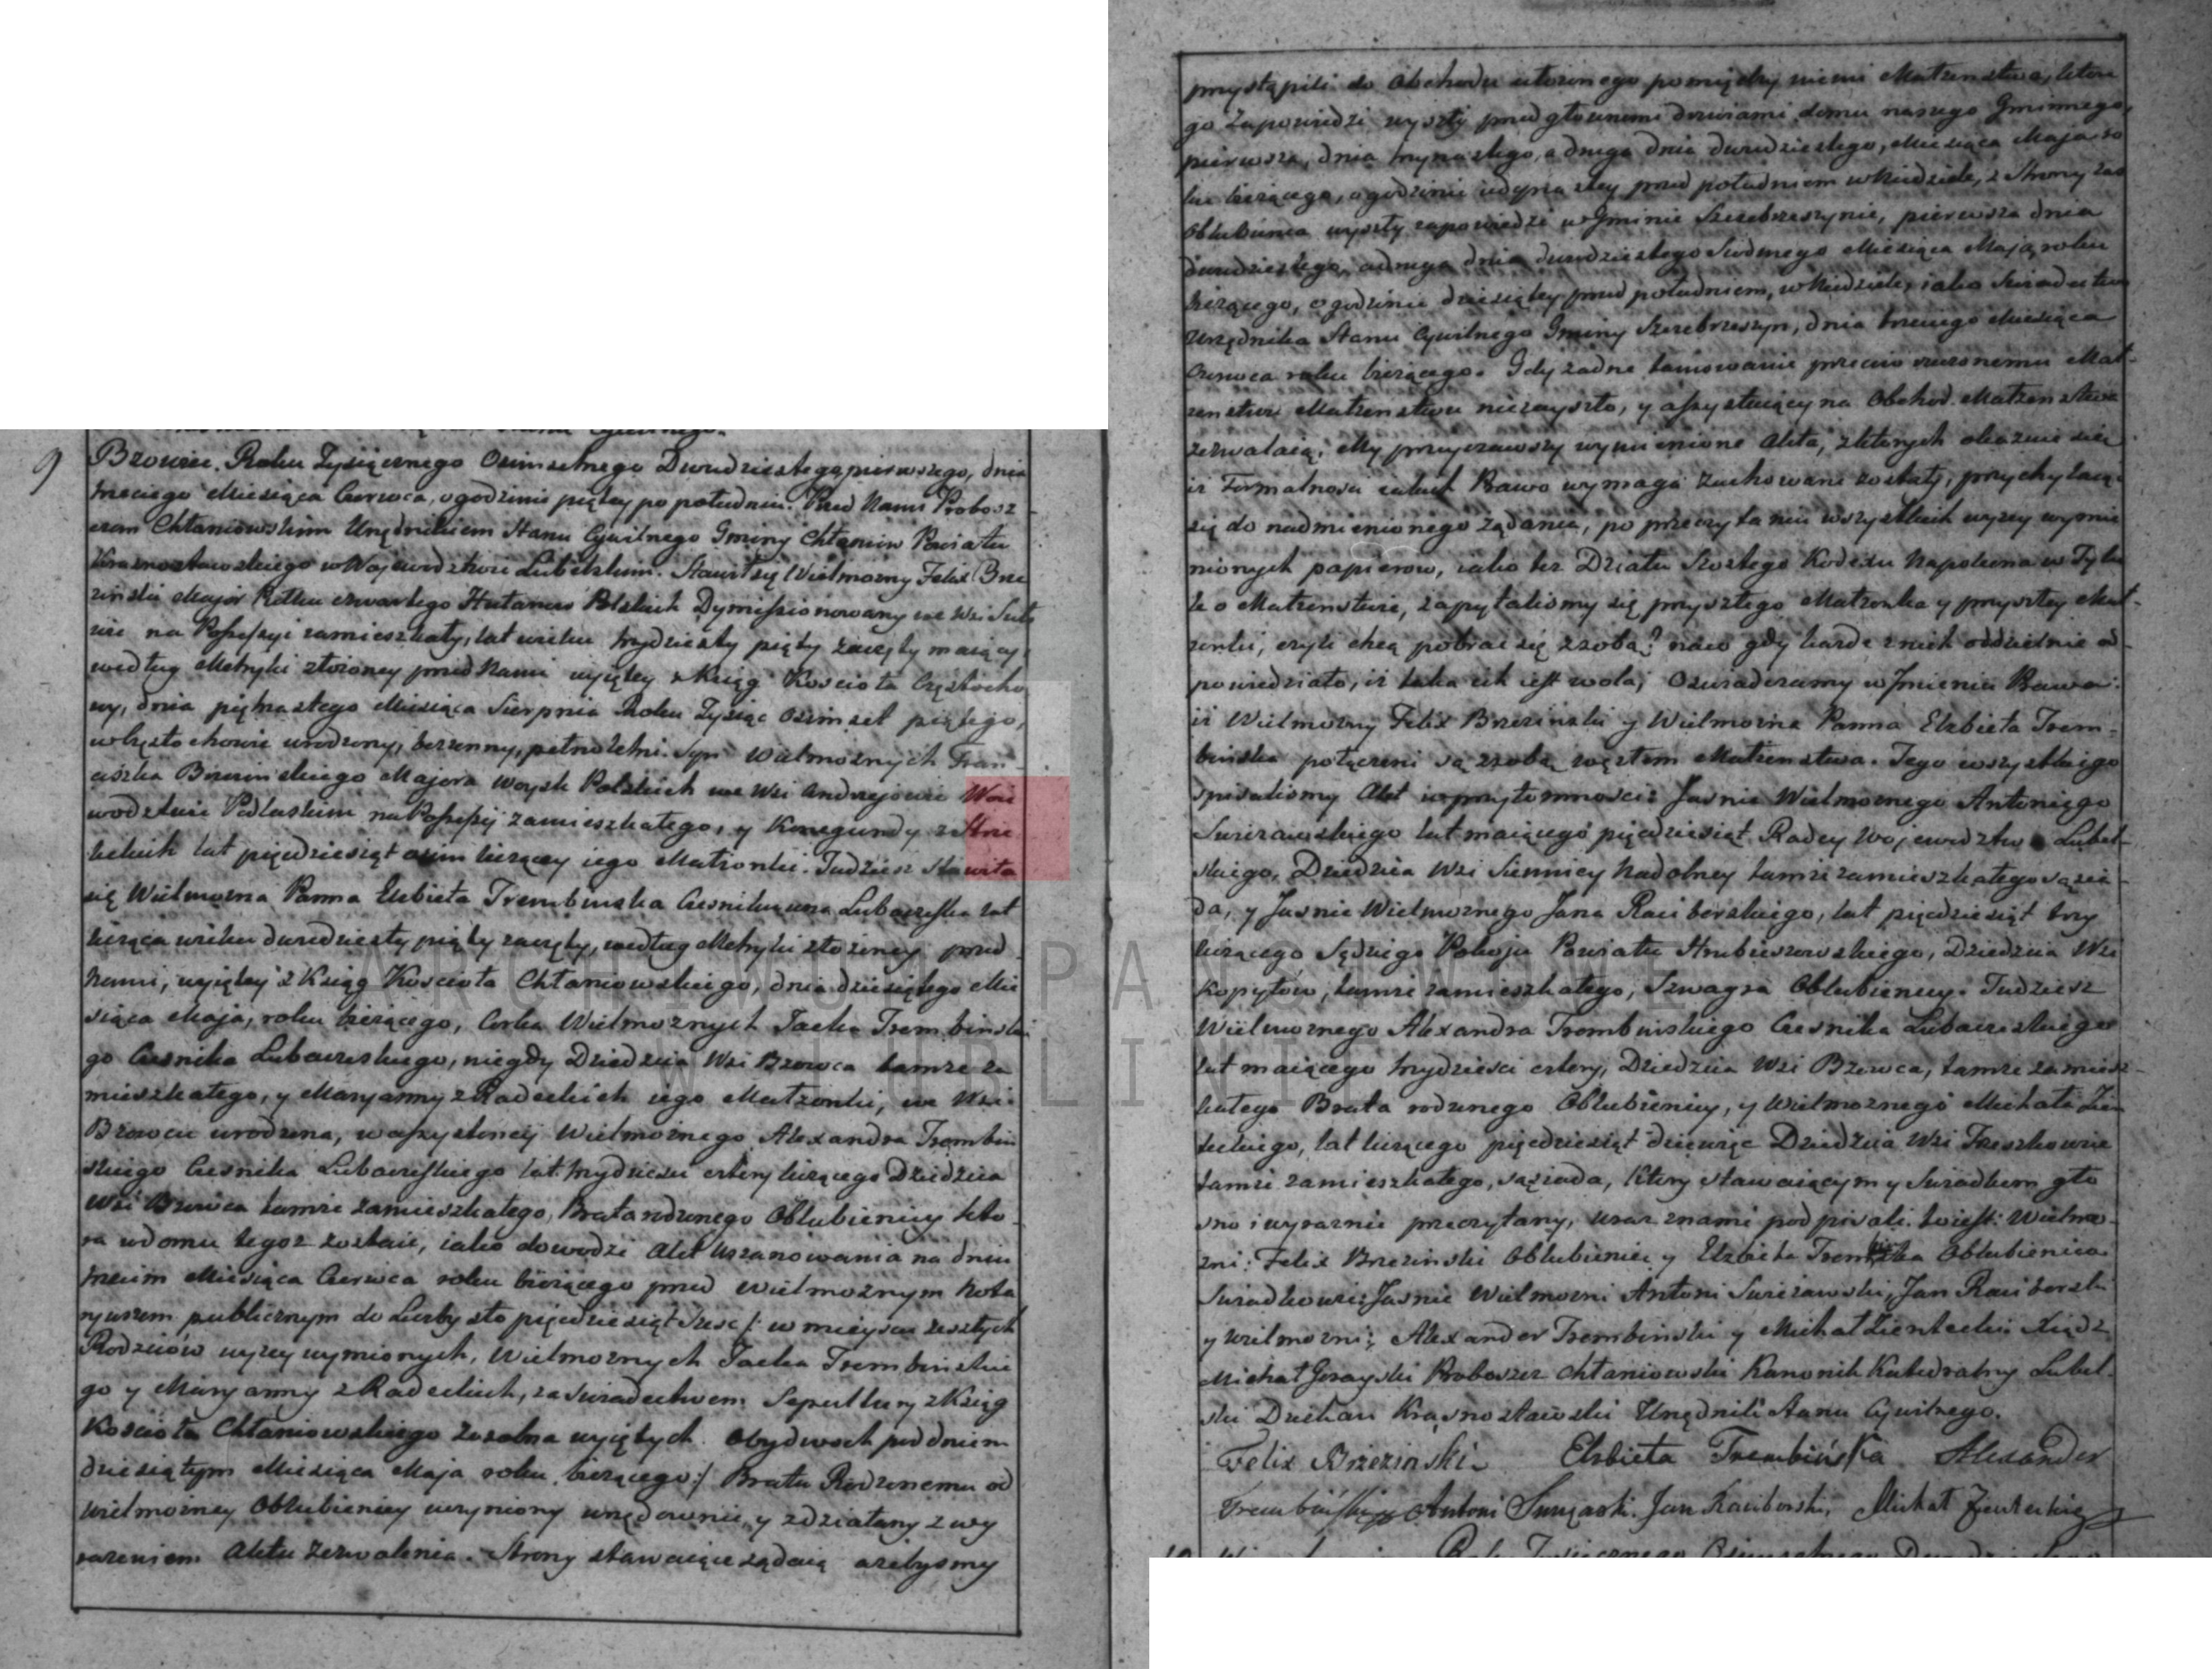 9
Bzowiec. Roku Tysiącznego Osimsetnego Dwudziestego pierwszego, dnia
trzeciego Miesiąca Czerwca, o godzinie piątey po południu. Przed Nami Probosz-
czem Chłaniowskim Urzędnikiem Stanu Cywilnego Gminy Chłaniow Powiatu
Krasnostawskiego w Wojewodztwie Lubelskim. Stawił się Wielmozny Felix Brze
zinski Major Pułku czwartego Hułanow Polskich Dymissionowany we Wsi
wie na Possessyi zamieszkały, lat wieku trzydziesty piąty zaczęty maiący,
według Metryki złożoney przed Nami wyiętey z Ksiąg Kościoła Częstocho
wy, dnia piętnastego Miesiąca Sierpnia Roku Tysiąc osimset piątego,
w Częstochowie urodzony, bezzenny, pełnoletni. Syn Wielmoznych Fran-
ciszka Brzezinskiego Majora Woysk Polskich we Wsi Andrzejowie Woie
wodztwie Podlaskim na Possessyi zamieszkałego, y Konegundy z Strze
leckich lat pięćdziesiąt osim liczący iego Małżonki. Tudzież Stawiła
się Wielmozna Panna Elzbieta Trembinska Czesnikowna Lubaczewska lat
licząca wieku dwudziesty piąty zaczęty, według Metryki złożoney przed
Nami, wyiętey z Ksiąg Kościoła Chłaniowskiego, dnia dziesiątego Mie
siąca Maja, roku bieżącego, Corka Wielmoznych Jacka Trembinskie
go Czesnika Lubaczewskiego, niegdy Dziedzica Wsi Bzowca tamze za
mieszkałego, y Maryanny z Radeckich iego Małżonki, we Wsi
Bzowcu urodzona, w assystencyi Wielmoznego Alexandra Trembin
skiego Czesnika Lubaczewskiego lat trzydzieści cztery liczącego Dziedzica
Wsi Bzowca tamze zamieszkałego, Brata rodzonego Oblubienicy kto-
ra w domu tegoz zostaie, iako dowodzi Akt Uszanowania na dniu
trzecim Miesiąca Czerwca roku bieżącego przed Wielmoznym Nota
ryuszem publicznym do Liczby sto pięćdziesiąt sześć /: w mieyscu zeszłych
Rodziców wyzey wymionych, Wielmoznych Jacka Trembinskie
go y Maryanny z Radeckich, za swiadectwem Sepultury z Ksiąg
Kościoła Chłaniowskiego Zosobna wyiętych Obydwoch pod dniem
dziesiątym Miesiąca Maja roku bieżącego :/ Bratu Rodzonemu od
Wielmozney Oblubienicy uczyniony urzędownie, y zdziałany z wy
razeniem Aktu Zezwolenia. Strony stawaiące ządaią azebysmy
przystąpili do Obchodu ułozonego pomiędzy niemi Małzenstwa, ktore
go Zapowiedzi wyszły przed głownemi drzwiami domu naszego Gminnego,
pierwsza, dnia trzynastego, a druga dnia dwudziestego, Miesiąca Maja ro
ku bieżącego, o godzinie iedynastey przed południem w Niedziele, z Strony zas
Oblubienca wyszły zapowiedzi w Gminie Szczebrzeszynie, pierwsza dnia
dwudziestego, a druga dnia dwudziestego siodmego Miesiąca Maja, roku
bieżącego, o godzinie dziesiątey przed południem, w Niedziele, iako Swiadectwo
Urzędnika Stanu Cywilnego Gminy Szczebrzeszyn, dnia trzeciego Miesiąca
Czerwca roku bieżącego. Gdy zadne tamowanie przeciw rzeczonemu Mał-
zenstwu Małzenstwu niezaszło, y assystuiący na Obchod Małzenstwa
zezwalaią; My przeyrzawszy wymienione Akta, z ktorych okazuie się
iz Formalnosci iakich Prawo wymaga zachowane zostały, przychylaiąc
się do nadmienionego ządania, po przeczytaniu wszystkich wyzey wymie
nionych papierow, iako tez Działu Szostego Kodexu Napoleona w Tytu
le o Małzenstwie, zapytalismy się przyszłego Małzonka y przyszłey Mał-
zonki, czyli chcą pobrac się z sobą? na co gdy kazde z nich oddzielnie od-
powiedziało, iz taka ich iest wola; Oswiadczamy w Imieniu Prawa:
iz Wielmozny Felix Brzezinski y Wielmozna Panna Elzbieta Trem-
binska połączeni są z sobą węzłem Małzenstwa. Tego wszystkiego
spisalismy Akt w przytomnosci: Jasnie Wielmoznego Antoniego
Suryżawskiego lat maiącego pięćdziesiąt Radcy Wojewodztwa Lubel-
skiego, Dziedzica Wsi Siennicy Nadolney tamze zamieszkałego sąsia-
da, y Jasnie Wielmoznego Jana Raciborskiego, lat pięćdziesiąt trzy
liczącego Sędziego Pokoju Powiatu Hrubieszowskiego, Dziedzica Wsi
Kopyłow, tamze zamieszkałego, Szwagra Oblubienicy. Tudziesz
Wielmoznego Alexandra Trembinskiego Czesnika Lubaczewskiego
lat maiącego trzydzieści cztery, Dziedzica Wsi Bzowca, tamze zamiesz-
kałego Brata rodzonego Oblubienicy, y Wielmoznego Michała Zien
teckiego, lat liczącego pięćdziesiąt dziewięc Dziedzica Wsi
tamze zamieszkałego, sąsiada, ktory stawaiącym y Swiadkom gło
sno i wyraznie przeczytany, wraz z nami podpisali. to iest: Wielmo-
zni: Felix Brzezinski Oblubieniec y Elzbieta Trembinska Oblubienica
Swiadkowie: Jasnie Wielmozni Antoni Suryżawski, Jan Raciborski
y Wielmozni; Alexander Trembinski y Michał Zientecki Xiądz
Michał Proboszcz Chłaniowski Kanonik Katedralny Lubel-
ski Dziekan Krasnostawski Urzędnik Stanu Cywilnego.
Felix Brzezinski Elzbieta Trembińska Alexander
Trembiński Antoni Jan Raciborski, Michał Zientecki
ARCHIWUM PAŃSTWOWE
W LUBLINIE